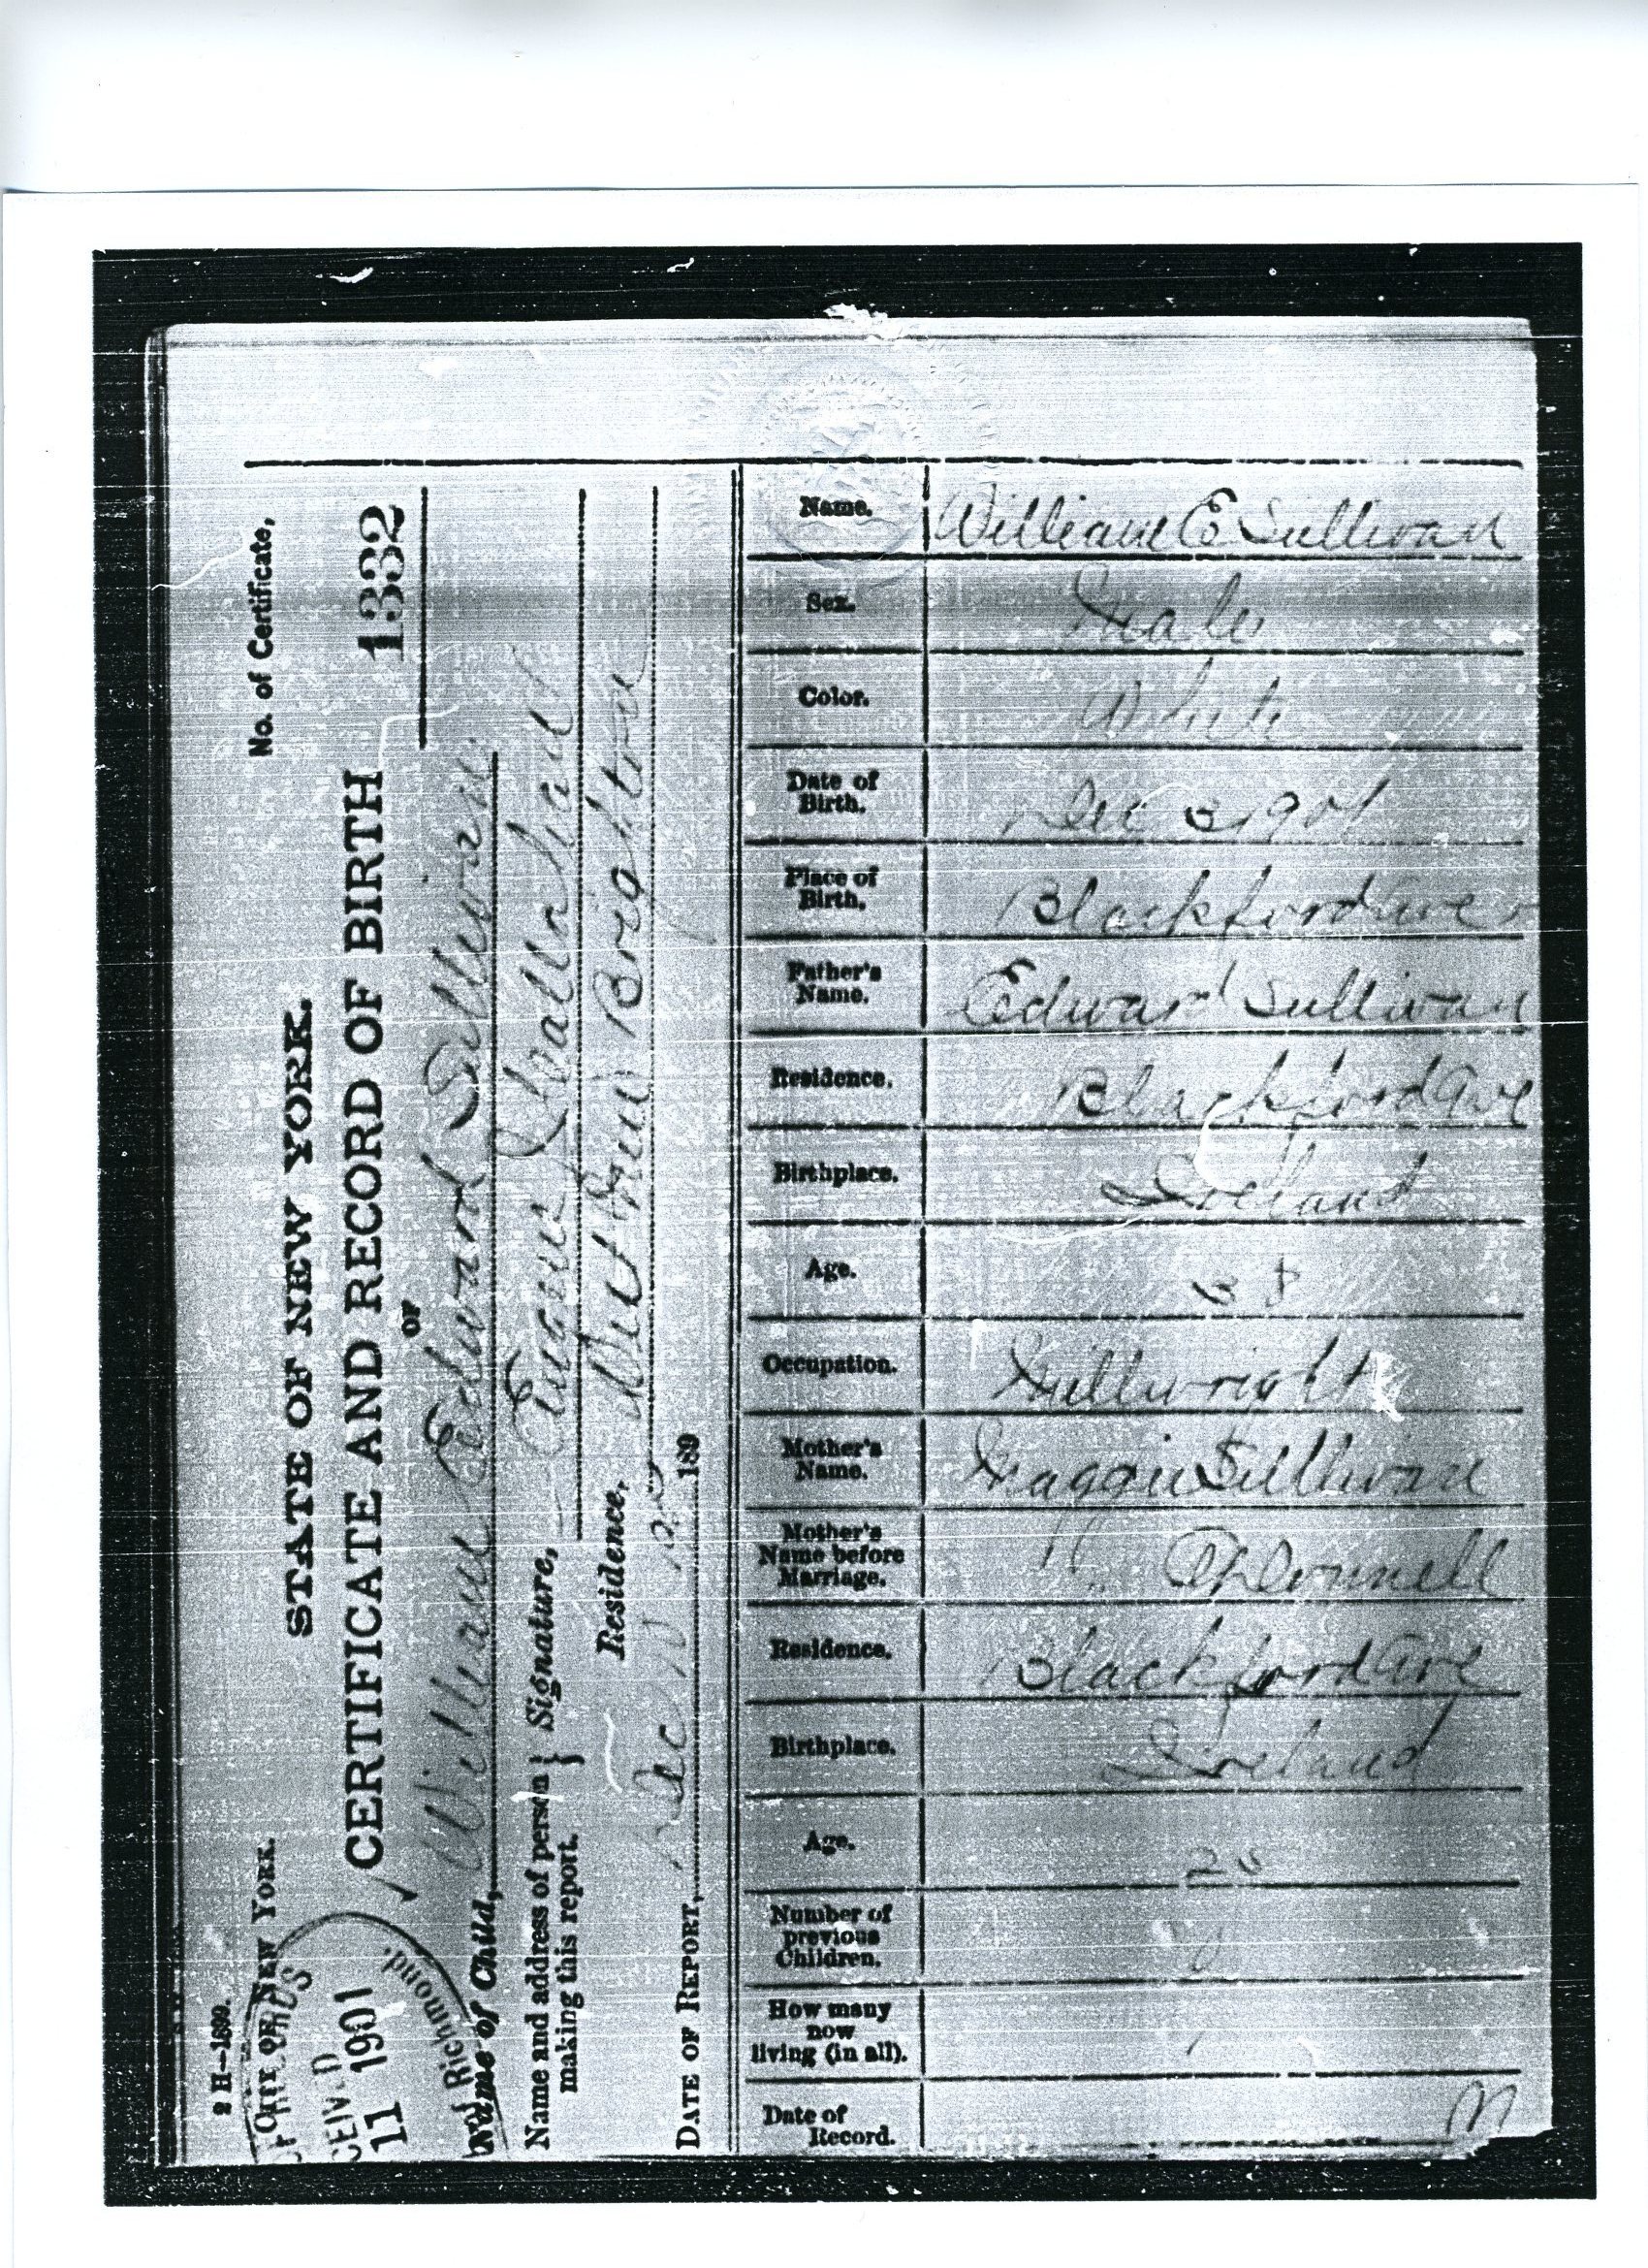 2 H-1899.
CITY OF NEW YORK.
STATE OF NEW YORK.
No. of Certificate,
CERTIFICATE AND RECORD OF BIRTH
1332
OF
11 1901
Richmond.
Name of Child, William Edward Sullivan
Name and address of person making this report. } Signature, Eugene
Residence, West New Brighton
DATE OF REPORT, Dec 10 189
Name. William E Sullivan
Sex. Male
Color. White
Date of Birth. Dec 3 1901
Place of Birth. Blackford Ave
Father's Name. Edward Sullivan
Residence. Blackford Ave
Birthplace. Ireland
Age. 38
Occupation. Millwright
Mother's Name. Maggie Sullivan
Mother's Name before Marriage. " O'Donnell
Residence. Blackford Ave
Birthplace. Ireland
Age.
Number of previous Children.
How many now living (in all).
Date of Record.